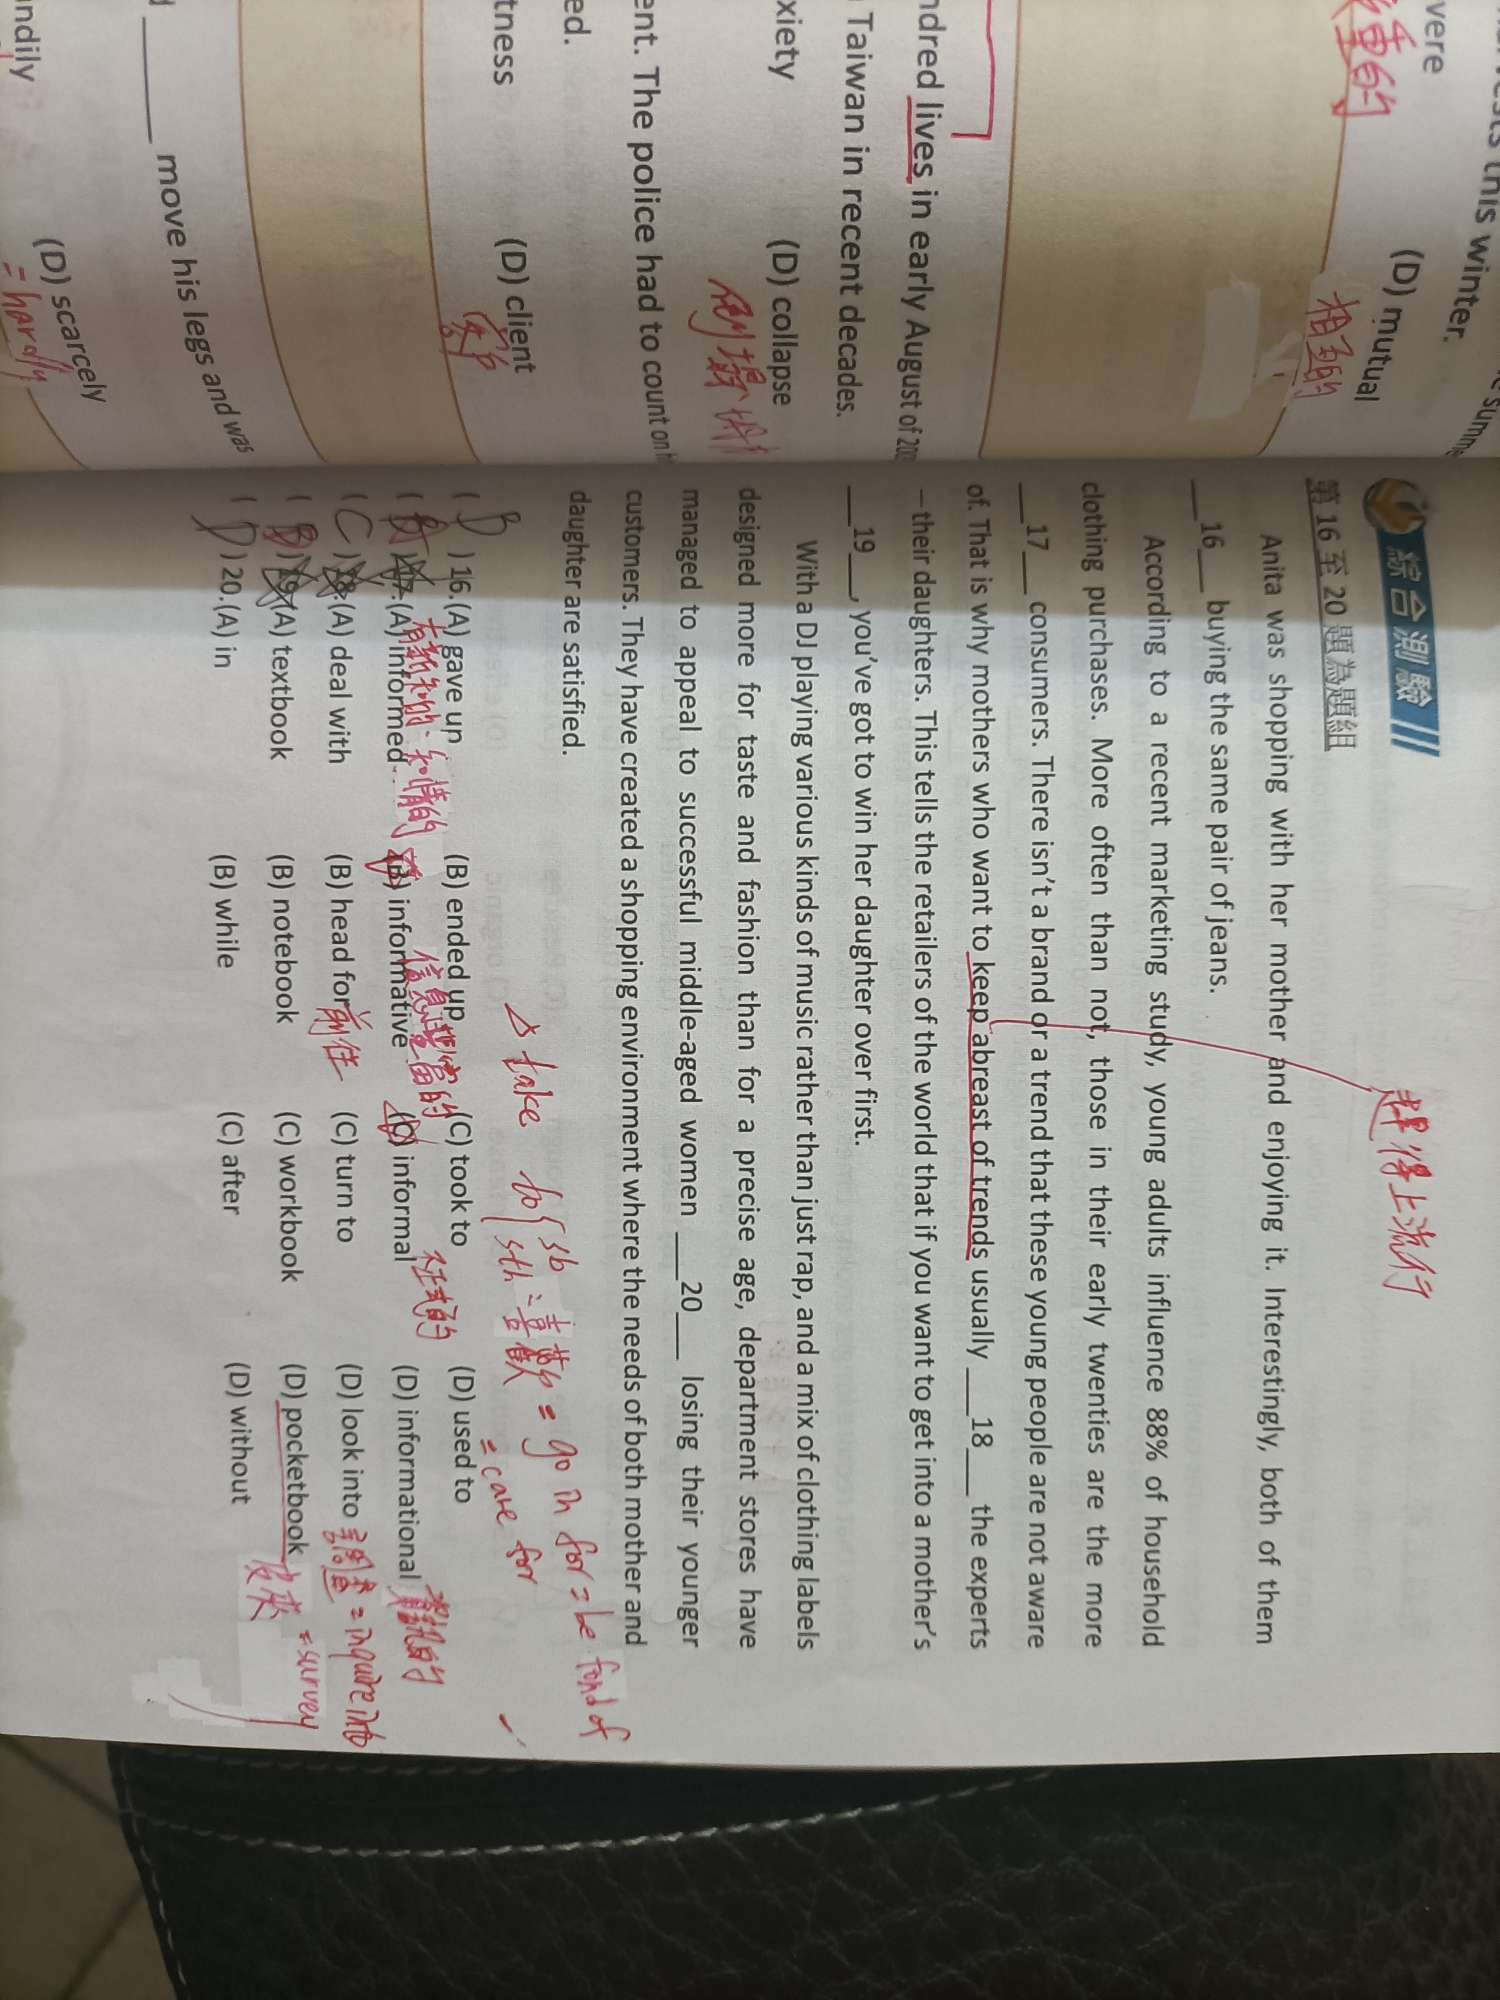 this winter.
vere
(D) mutual
相互的
重的
ndred lives in early August of 200
Taiwan in recent decades.
xiety
(D) collapse
ent. The police had to count on
ed.
tness
(D) client
move his legs and was
ndily
(D) scarcely
= hardly
綜合測驗
第 16 至 20 題為題組
趕得上流行
Anita was shopping with her mother and enjoying it. Interestingly, both of them
___16___ buying the same pair of jeans.
According to a recent marketing study, young adults influence 88% of household
clothing purchases. More often than not, those in their early twenties are the more
___17___ consumers. There isn't a brand or a trend that these young people are not aware
of. That is why mothers who want to keep abreast of trends usually ___18___ the experts
– their daughters. This tells the retailers of the world that if you want to get into a mother's
___19___, you've got to win her daughter over first.
With a DJ playing various kinds of music rather than just rap, and a mix of clothing labels
designed more for taste and fashion than for a precise age, department stores have
managed to appeal to successful middle-aged women ___20___ losing their younger
customers. They have created a shopping environment where the needs of both mother and
daughter are satisfied.
△ take to sb sth = 喜歡 = go in for = be fond of
= care for
( B ) 16.(A) gave up (B) ended up (C) took to (D) used to
有新知的、知情的 信息豐富的 不正式的 資訊的
17.(A) informed (B) informative (C) informal (D) informational
( C ) 18.(A) deal with (B) head for 前往 (C) turn to (D) look into 調查 = inquire into
= survey
19.(A) textbook (B) notebook (C) workbook (D) pocketbook 皮夾
( D ) 20.(A) in (B) while (C) after (D) without